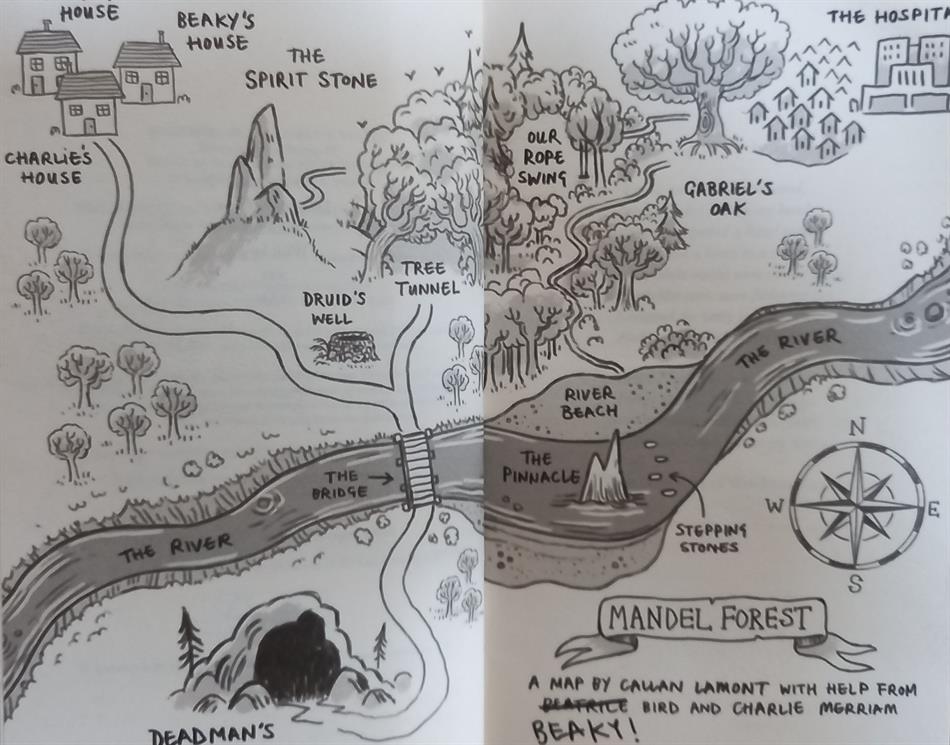 HOUSE
BEAKY'S
HOUSE
THE
SPIRIT STONE
CHARLIE'S
HOUSE
TREE
TUNNEL
DRUID'S
WELL
THE
BRIDGE
THE RIVER
DEADMAN'S
THE HOSPITA
OUR
ROPE
SWING
GABRIEL'S
OAK
RIVER
BEACH
THE RIVER
THE
PINNACLE
STEPPING
STONES
N
W
E
S
MANDEL FOREST
A MAP BY CALLAN LAMONT WITH HELP FROM
BEATRICE BIRD AND CHARLIE MERRIAM
BEAKY!